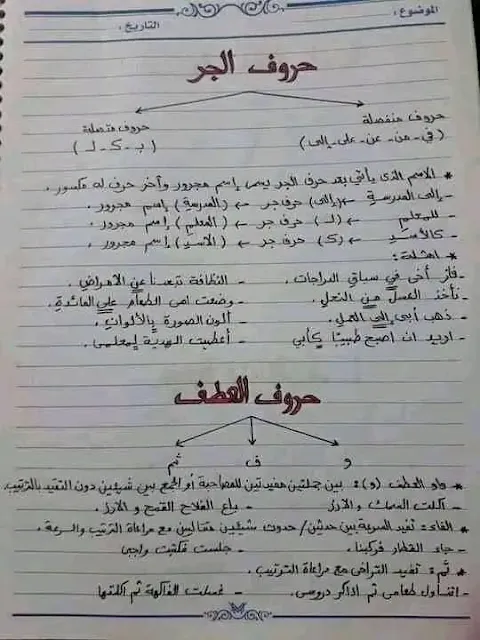 الموضوع :
التاريخ :
حروف الجر
حروف منفصلة
(في - من - عن - على - إلى)
حروف متصلة
(بـ - كـ - لـ)
* الاسم الذى يأتي بعد حرف الجر يسمى إسم مجرور وآخر حرف له مكسور .
- إلى المدرسةِ ← (إلى) حرف جر ← (المدرسةِ) إسم مجرور .
- للمعلمِ ← (لـ) حرف جر ← (المعلمِ) إسم مجرور .
- كالأسدِ ← (كـ) حرف جر ← (الأسدِ) إسم مجرور .
* امثلة :
- فاز أخى في سباق الدراجات .
- النظافة تبعدنا عن الأمراض .
- نأخذ العسل من النحل .
- وضعت امى الطعام على المائدةِ .
- ذهب أبى إلى العمل .
- ألون الصورة بالألوانِ .
- اريد ان اصبح طبيبًا كأبي
- أعطيت الهدية لمعلمى .
حروف العطف
و ف ثم
* واو العطف (و) : بين جملتين مفيدتين للمصاحبة أو الجمع بين شيئين دون التقيد بالترتيب
- أكلت السمك و الأرز
- باع الفلاح القمح و الأرز .
* الفاء : تفيد السرعة بين حدثين / حدوث شيئين متتاليين مع مراعاة الترتيب والسرعة .
- جاء القطار فركبنا .
- جلست فكتبت واجبى
* ثم : تفيد التراخى مع مراعاة الترتيب .
- اتناول طعامى ثم اذاكر دروسى .
- غسلت الفاكهة ثم أكلتها